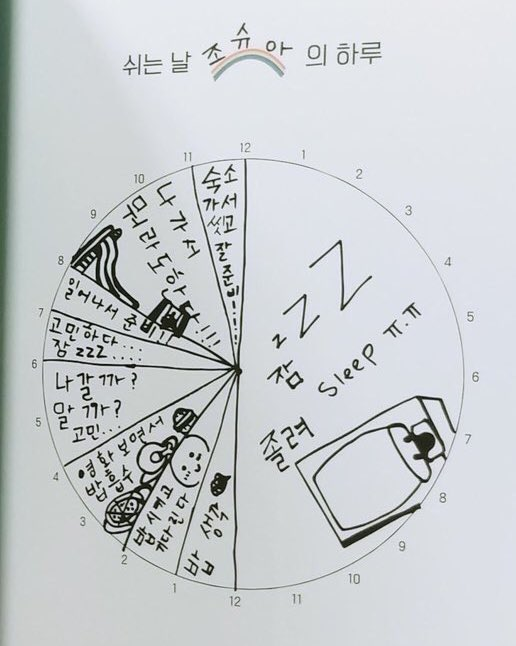 쉬는 날 조슈아 의 하루
12
1
2
3
4
5
6
7
8
9
10
11
12
1
2
3
4
5
6
7
8
9
10
11
zZZ
잠
sleep ㅠ.ㅠ
졸려
밥 생각
밥 시키고
기다린다
영화 보면서
밥 흡수
나갈까?
말까?
고민...
고민하다
잠 zzz....
일어나서 준비!!
나가서
뭐라도 하다!!!
숙소
가서
씻고
잘
준비!...